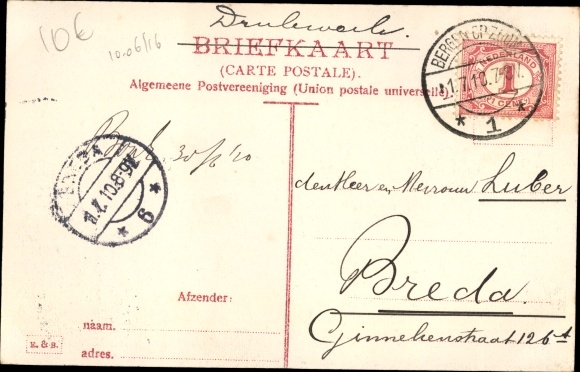 10€
10-06/16
Drukwerk.
BRIEFKAART
(CARTE POSTALE).
Algemeene Postvereeniging (Union postale universelle)
BERGEN OP ZOOM
1.7.10.7
1
NEDERLAND
1
CENT
30/6 '10
1.7.10.8-9
6
den Heer en Mevrouw Luber
Breda.
Ginnekenstraat 126
Afzender:
naam.
adres.